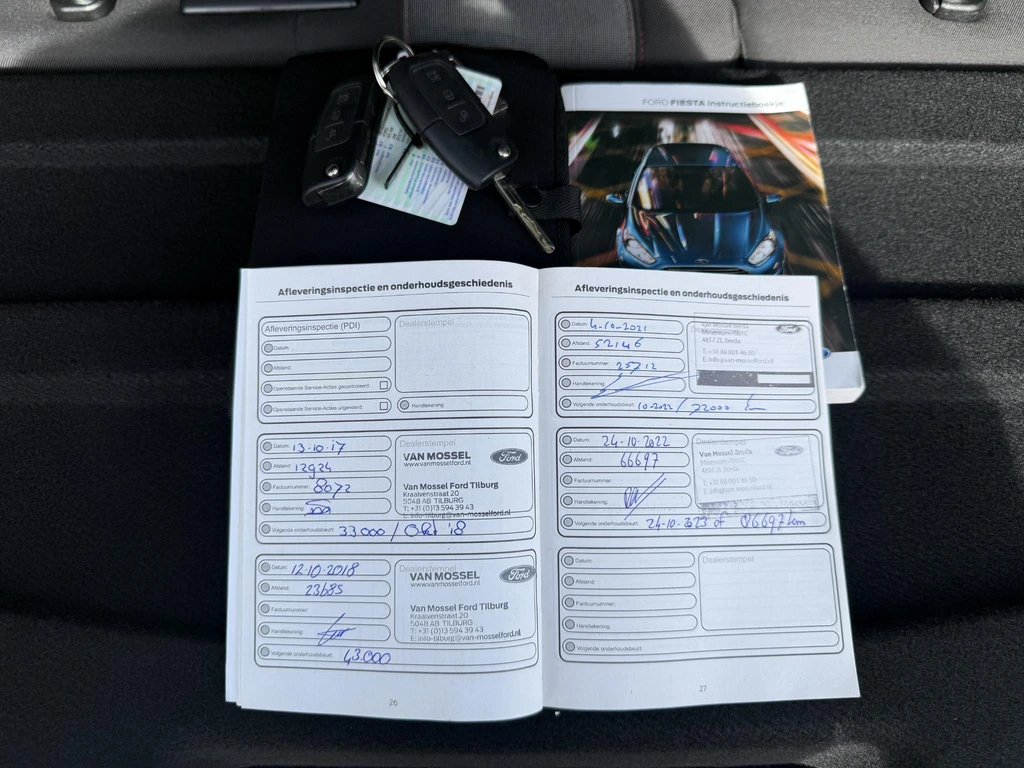 FORD FIESTA Instructieboekje
Afleveringsinspectie en onderhoudsgeschiedenis
Afleveringsinspectie (PDI)
Datum:
Afstand:
Openstaande Service-Acties gecontroleerd:
Openstaande Service-Acties uitgevoerd:
Dealerstempel
Handtekening:
Datum: 13-10-17
Afstand: 12924
Factuurnummer: 8072
Handtekening:
Volgende onderhoudsbeurt: 33.000 / Okt '18
Dealerstempel
VAN MOSSEL
www.vanmosselford.nl
Ford
Van Mossel Ford Tilburg
Kraaivenstraat 20
5048 AB TILBURG
T: +31 (0)13 594 39 43
E: info-tilburg@van-mosselford.nl
Datum: 12-10-2018
Afstand: 23685
Factuurnummer:
Handtekening:
Volgende onderhoudsbeurt: 43.000
Dealerstempel
VAN MOSSEL
www.vanmosselford.nl
Ford
Van Mossel Ford Tilburg
Kraaivenstraat 20
5048 AB TILBURG
T: +31 (0)13 594 39 43
E: info-tilburg@van-mosselford.nl
26
Afleveringsinspectie en onderhoudsgeschiedenis
Datum: 4-10-2021
Afstand: 52146
Factuurnummer: 25712
Handtekening:
Volgende onderhoudsbeurt: 10-2022 / 72000 km
Van Mossel Breda
Minervum 7001C
4817 ZL Breda
T: +31 88 001 46 50
E: info@van-mosselford.nl
Ford
Datum: 24-10-2022
Afstand: 66697
Factuurnummer:
Handtekening:
Volgende onderhoudsbeurt: 24-10-2023 of 86697 km
Dealerstempel
Van Mossel Breda
Minervum 7001C
4817 ZL Breda
T: +31 88 001 46 50
Ford
Datum:
Afstand:
Factuurnummer:
Handtekening:
Volgende onderhoudsbeurt:
Dealerstempel
27